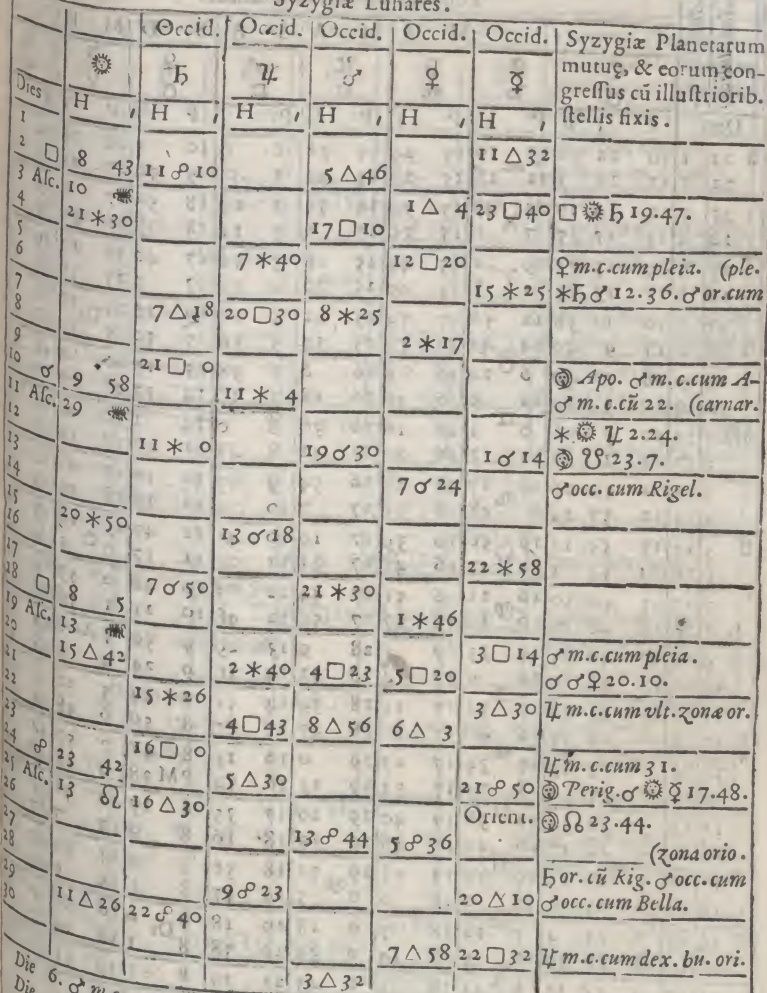 Syzygiæ Lunares.
Occid. Occid. Occid. Occid. Occid. Syzygiæ Planetarum
☉ ♄ ♃ ♂ ♀ ☿ mutuę, & eorum con-
Dies H H , H , H , H , H , greſſus cũ illuſtriorib.
ſtellis fixis.
1
2 □ 8 43 11 ☍ 10 5 △ 46 11 △ 32
3 Aſc. 10 ♋
4 21 ✶ 30 1 △ 4 23 □ 40 □ ☉ ♄ 19.47.
5 17 □ 10
6 7 ✶ 40 12 □ 20 ♀ m.c.cum pleia. (ple.
7 15 ✶ 25 ✶ ♄ ♂ 12.36. ♂ or.cum
8 7 △ 18 20 □ 30 8 ✶ 25
9 2 ✶ 17
10 ☌ 9 58 21 □ 0 ☽ Apo. ♂ m.c.cum A-
11 Aſc. 29 ♋ 11 ✶ 4 ♂ m.c.cũ 22. (carnar.
12 ✶ ☉ ♃ 2.24.
13 11 ✶ 0 19 ☌ 30 1 ☌ 14 ☽ ☋ 23.7.
14 7 ☌ 24 ♂ occ. cum Rigel.
15
16 20 ✶ 50 13 ☌ 18
17 22 ✶ 58
18 □ 8 5 7 ☌ 50 21 ✶ 30
19 Aſc. 13 ♋ 1 ✶ 46
20 15 △ 42 3 □ 14 ♂ m.c.cum pleia.
21 2 ✶ 40 4 □ 23 5 □ 20 ☌ ♂ ♀ 20.10.
22 15 ✶ 26 3 △ 30 ♃ m.c.cum vlt.zonæ or.
23 4 □ 43 8 △ 56 6 △ 3
24 ☍ 23 42 16 □ 0 ♃ m.c.cum 31.
25 Aſc. 13 ♌ 5 △ 30 21 ☍ 50 ☽ Perig. ☌ ☉ ☿ 17.48.
26 16 △ 30 Orient. ☽ ☊ 23.44.
27 13 ☍ 44 5 ☍ 36 (zona orio.
28 ♄ or. cũ Rig. ♂ occ.cum
29 9 ☍ 23 20 △ 10 ♂ occ. cum Bella.
30 11 △ 26 22 ☍ 40
7 △ 58 22 □ 32 ♃ m.c.cum dex. bu. ori.
3 △ 32
Die 6. ♂ m.
Die